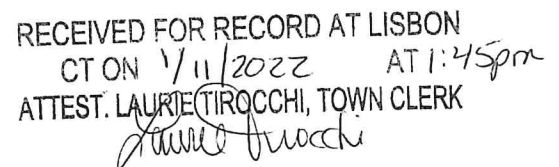 RECEIVED FOR RECORD AT LISBON
CT ON 1/11/2022 AT 1:45pm
ATTEST. LAURIE TIROCCHI, TOWN CLERK
Laurie Tirocchi